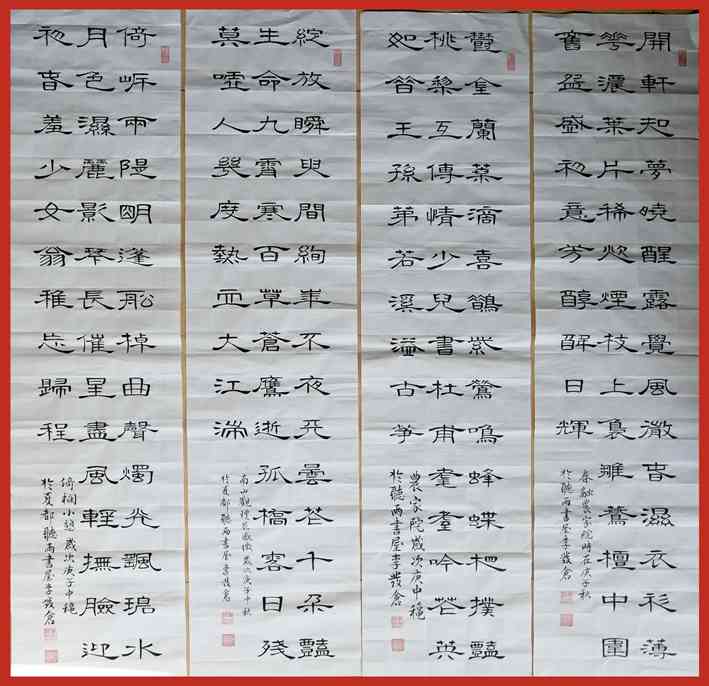 開軒知夢曉醒露覺風微春濕衣衫薄
花濃葉片稀炊煙枝上裊雛鶯檀中圍
舊盛初意芳醇醉日輝
春融農家院時在庚子秋
於聽雨書屋李發倉
鬱金蘭葉滴喜鵲紫鶯鳴蜂蝶杷撲豔
桃黎互傳情少兒書杜甫耄耋吟花英
如昔王孫弟若溪溢古箏
農家院歲次庚中穐
於聽雨書屋李發倉
綻放瞬臾間絢不夜天曇花千朵豔
生命九霄寒百草蒼鷹逝孤橋客日殘
莫嘘人幾度熱血大江湍
南山觀曇花感懷歲次庚子中秋
於夏都聽雨書屋李發倉
倚岍兩隄明蓬船棹曲聲燭光飄碧水
月色濕麗影琴長催星盡風輕撫臉迎
初春羞少女翁稚忘歸程
倚欄小憩歲次庚子中穐
於夏都聽雨書屋李發倉